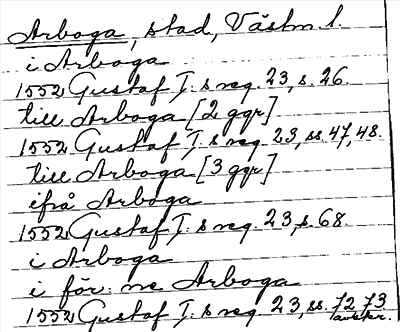 Arboga, stad, Västm. l.
i Arboga
1552 Gustaf I:s reg. 23, s. 26.
till Arboga [2 ggr]
1552 Gustaf I:s reg. 23, ss. 47, 48.
till Arboga [3 ggr]
ifrå Arboga
1552 Gustaf I:s reg. 23, s. 68.
i Arboga
i för:ne Arboga
1552 Gustaf I:s reg. 23, ss. 72, 73
avskr.